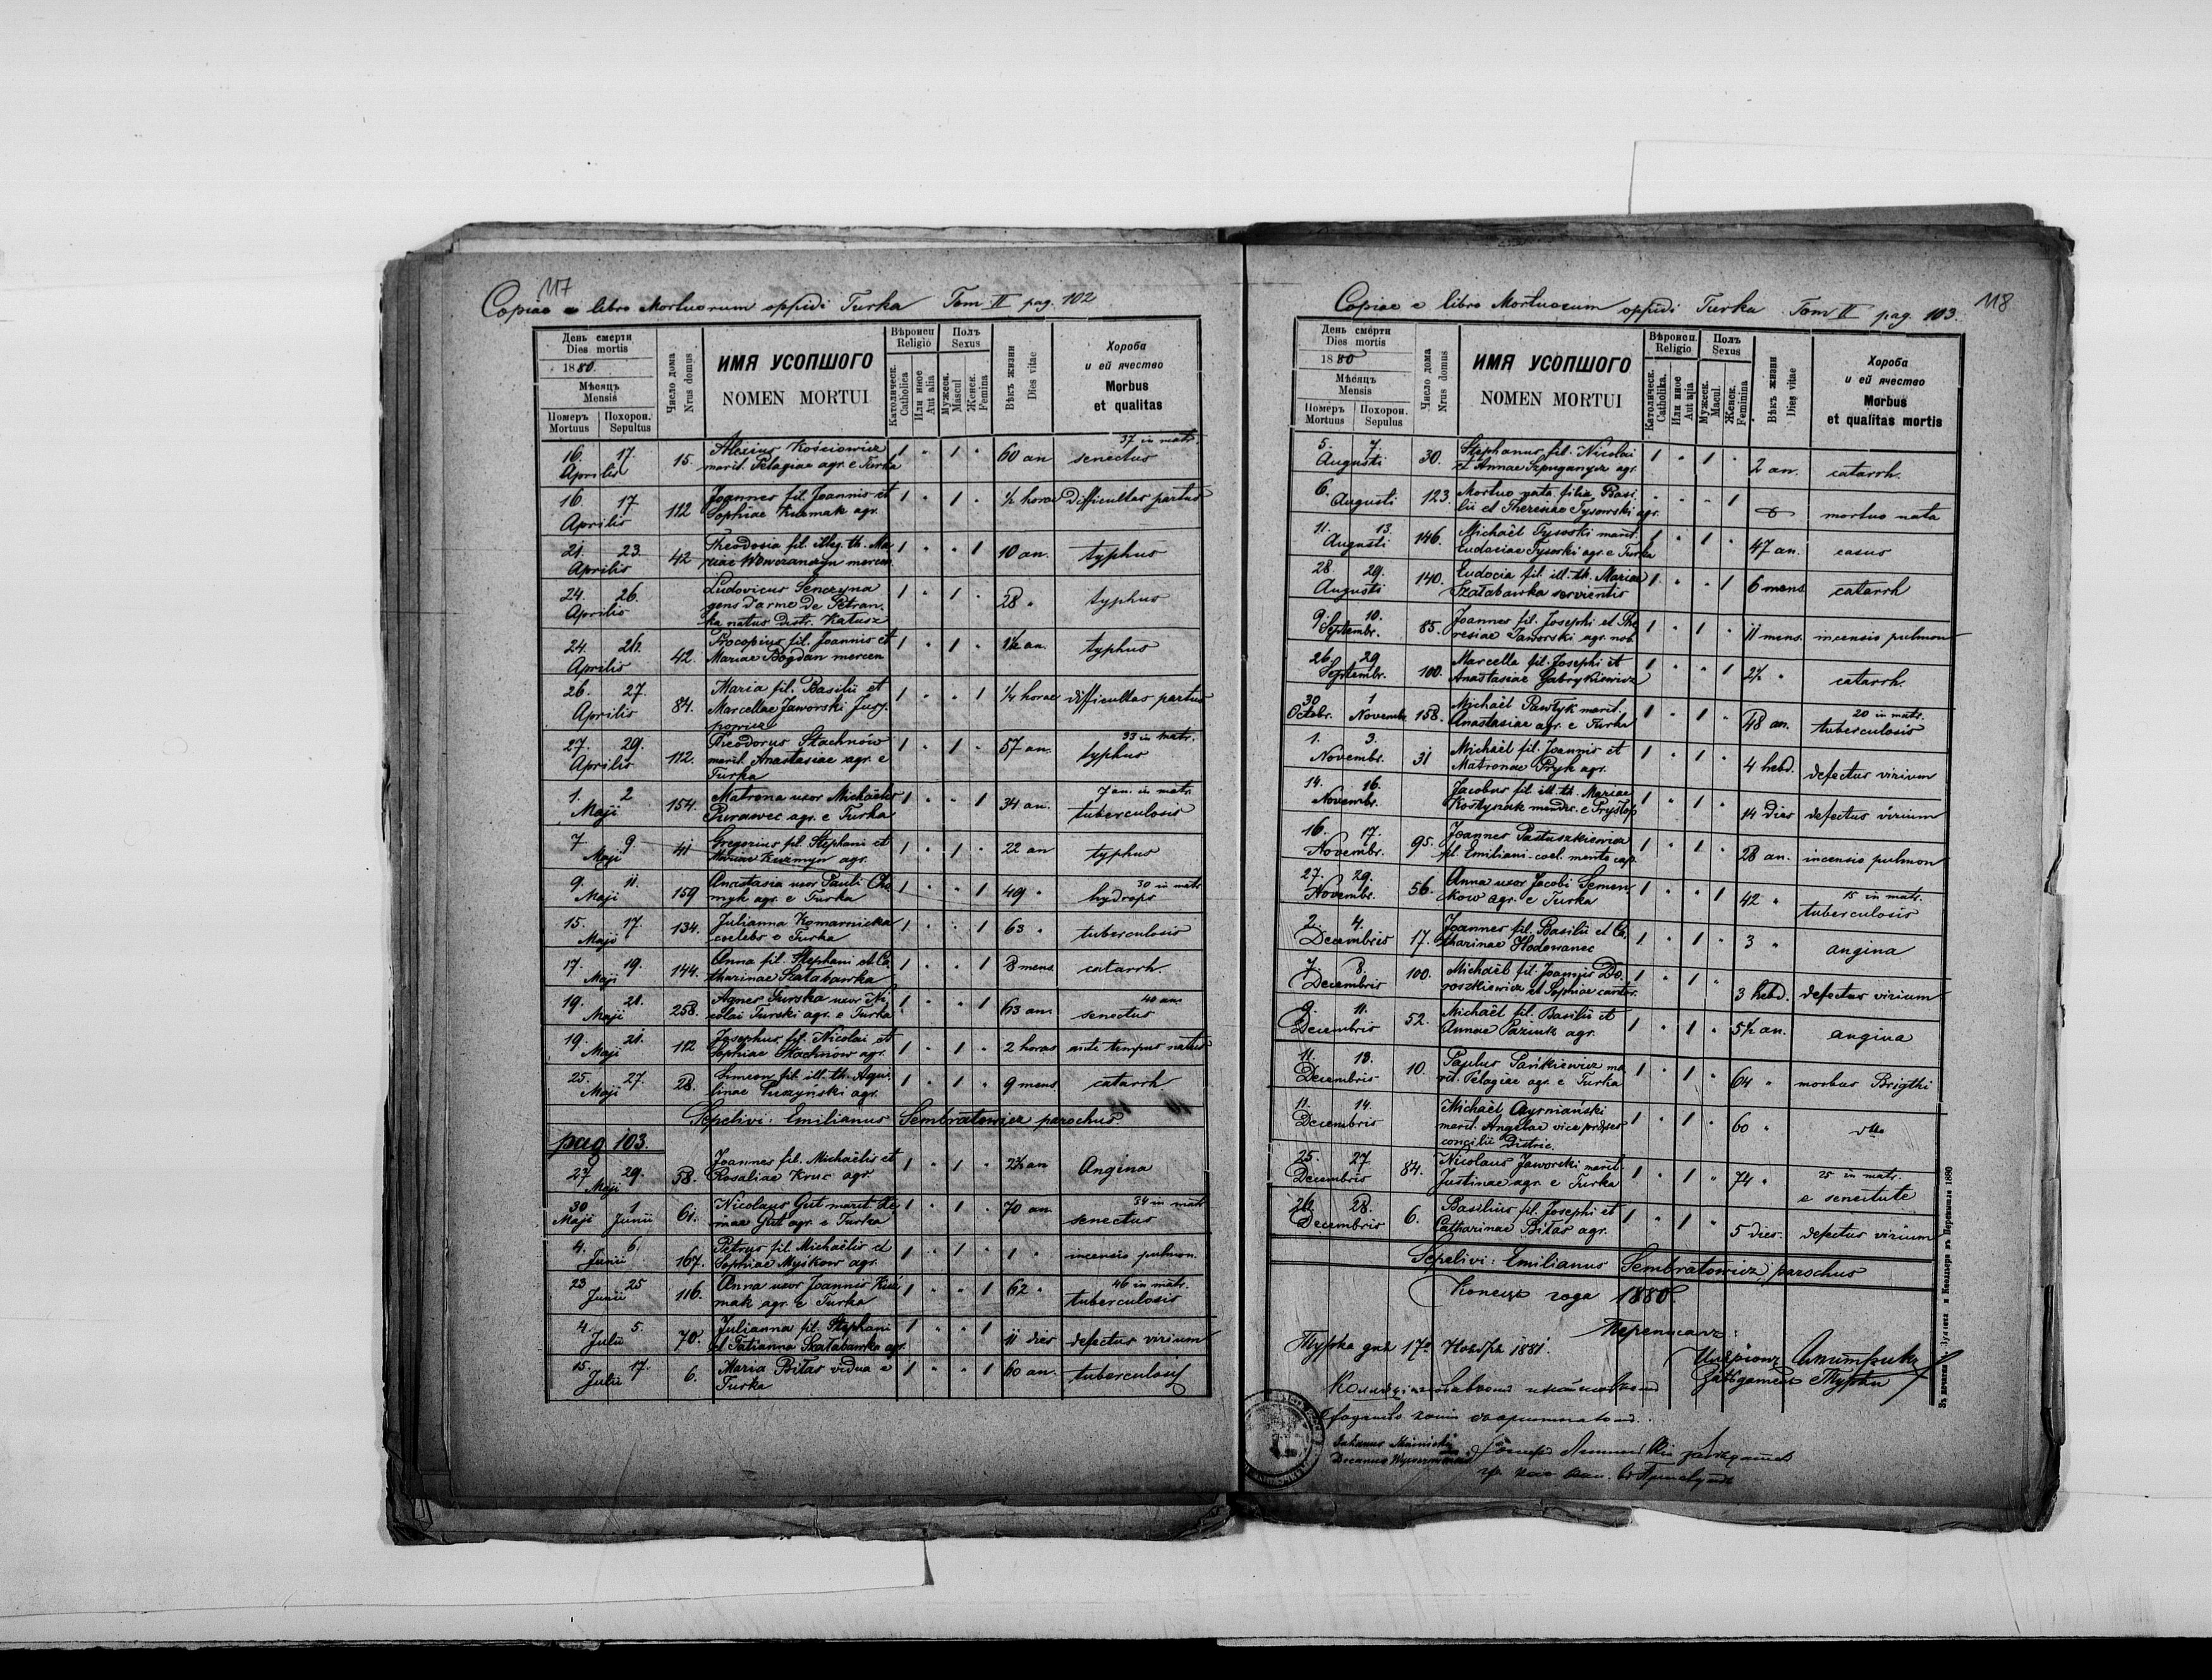 117
Copiae e libro Mortuorum oppidi Turka Tom II pag. 102
День смерти
Dies mortis
1880.
Мѣсяцъ
Mensis
Померъ Mortuus
Похорон. Sepultus
Число дома
Nrus domus
ИМЯ УСОПШОГО
NOMEN MORTUI
Вѣроисп
Religio
Католическ. Catholica
Или иное Aut alia
Полъ
Sexus
Мужеск. Mascul
Женск. Femina
Вѣкъ жизни
Dies vitae
Хороба
и ей ячество
Morbus
et qualitas
16. 17. Aprilis 15. Alexius Kościowicz 1 " 1 " 60 an 37 in matr.
marit. Pelagiae agr. e Turka senectus
16 17 Aprilis 112 Joannes fil. Joannis et 1 " 1 " ½ horae Difficultas partus
Sophiae Kuzmak agr.
21. 23. Aprilis 42 Theodosia fil. illeg. th. Ma 1 " " 1 10 an. typhus
riae Wowczanczyn mercen.
24. 26. Aprilis Ludovicus Senczyna 1 " 1 " 28 " typhus
gens d'arme de Petran
ka natus distr. Kałusz
24. 26. Aprilis 42. Procopius fil. Joannis et 1 " 1 " 1½ an. typhus
Mariae Bogdan mercen
26. 27. Aprilis 84. Maria fil. Basilii et 1 " " 1 ¼ horae difficultas partus
Marcellae Jaworski Jurj
powicz
27. 29. Aprilis 112. Theodorus Stachnów 1 " 1 " 57 an. 33 in matr.
marit. Anastasiae agr. e typhus
Turka
1. 2 Maji 154. Matrona uxor Michaelis 1 " " 1 34 an. 7 an. in matr.
Purawec agr. e Turka tuberculosis
7 9 Maji 41 Gregorius fil. Stephani et 1 " 1 " 22 an typhus
Mariae Kuzmyn agr.
9. 11. Maji 159 Anastasia uxor Pauli Cho 1 " " 1 49 " 30 in matr
myk agr. e Turka hydrops
15. 17. Maji 134. Julianna Komarnicka 1 " " 1 63 " tuberculosis
coelebs e Turka
17. 19. Maji 144. Anna fil. Stephani et Ca 1 " " 1 8 mens. catarrh.
tharinae Szałabawka
19. 21. Maji 258. Agnes Turska uxor Ni 1 " " 1 63 an. 40 an.
colai Turski agr. e Turka senectus
19. 21. Maji 112 Josephus fil. Nicolai et 1 " 1 " 2 horas ante tempus natus
Sophiae Stachnów agr.
25. 27. Maji 28. Simeon fil. ill. th. Aqui 1 " 1 " 9 mens catarrh
linae Puszyński agr.
Sepelivi: Emilianus Sembratowicz parochus.
pag 103.
27 29. Maji 58. Joannes fil. Michaelis et 1 " 1 " 2½ an Angina
Rosaliae Kruc agr.
30 Maji 1 Junii 61. Nicolaus Gut marit. 1 " 1 " 70 an. 34 in matr
Gut agr. e Turka senectus
4. 6. Junii 167. Petrus fil. Michaëlis et 1 " 1 " 1 " incensio pulmon.
Sophiae Myśkow agr.
23 25 Junii 116. Anna uxor Joannis Kuz 1 " " 1 62 " 46 in matr.
mak agr. e Turka tuberculosis
4. 5. Julii 70. Julianna fil. Stephani 1 " " 1 11 dies defectus virium
et Tatianna Szałabawka agr.
15. 17. Julii 6. Maria Biłas vidua e 1 " " 1 60 an. tuberculosis
Turka
118
Copiae e libro Mortuorum oppidi Turka Tom II pag. 103.
День смерти
Dies mortis
1880
Мѣсяцъ
Mensis
Померъ Mortuus
Похорон. Sepulus
Число дома
Nrus domus
ИМЯ УСОПШОГО
NOMEN MORTUI
Вѣроисп.
Religio
Католическ. Catholika.
Или иное Aut alja
Полъ
Sexus
Мужеск. Macul.
Женск. Feminina
Вѣкъ жизни
Dies vitae
Хороба
и ей ячество
Morbus
et qualitas mortis
5. 7. Augusti 30. Stephanus fil. Nicolai 1 " 1 " 2 an. catarrh.
et Annae Szpuganycz agr.
6. Augusti 123. Mortuo nata filia Basi " " " 1 mortuo nata
lii et Theresiae Tysowski agr.
11. 13. Augusti 146. Michaël Tysoski marit. 1 " 1 " 47 an. casus
Eudociae Tysoski agr. e Turka
28. 29. Augusti 140. Eudocia fil. ill. th. Mariae 1 " " 1 6 mens catarrh
Szałabawka servientis
9 10. Septembr. 85. Joannes fil. Josephi et The 1 " 1 " 11 mens. incensio pulmon
resiae Jaworski agr. nob.
26. 29 Septembr. 100. Marcella fil. Josephi et 1 " " 1 2½ " catarrh.
Anastasiae Gabrykiewicz
30 Octobr. 1 Novembr. 158. Michaël Pawłyk marit. 1 " 1 " 48 an. 20 in matr.
Anastasiae agr. e Turka tuberculosis
1. 3. Novembr. 31 Michaël fil. Joannis et 1 " 1 " 4 hebd. defectus virium
Matronae Byk agr.
14. 16. Novembr. Jacobus fil. ill. th. Mariae 1 " 1 " 14 dies defectus virium
Kostyszak mendic. e Prysłop
16. 17. Novembr. 95. Joannes Pastuszkiewicz 1 " 1 " 28 an. incensio pulmon
fil. Emiliani coel. mente cap.
27. 29. Novembr. 56. Anna uxor Jacobi Semen 1 " " 1 42 " 15 in matr.
ków agr. e Turka tuberculosis
2. 4. Decembris 17. Joannes fil. Basilii et Ca 1 " 1 " 3 " angina
tharinae Hodowanec
7 8. Decembris 100. Michaël fil. Joannis Do 1 " 1 " 3 hebd. defectus virium
roszkiewicz et Sophiae cantor.
9. 11. Decembris 52. Michaël fil. Basilii et 1 " 1 " 5½ an. angina
Annae Paziuk agr.
11. 13. Decembris 10. Paulus Pańkiewicz ma 1 " 1 " 64 " morbus Brigthi
rit. Pelagiae agr. e Turka
11. 14. Decembris Michaël Czyrniański 1 " 1 " 60 " dtto
marit. Angelae vice präses
concilii Distric.
25. 27 Decembris 84. Nicolaus Jaworski marit. 1 " 1 " 74 " 25 in matr.
Justinae agr. e Turka e senectute
26. 28. Decembris 6. Basilius fil. Josephi et 1 " 1 " 5 dies. defectus virium
Catharinae Biłas agr.
Sepelivi: Emilianus Sembratowicz, parochus
Конецъ года 1880.
Переписалъ:
Турка дня 17 Ноября 1881.
завѣдатель Турки